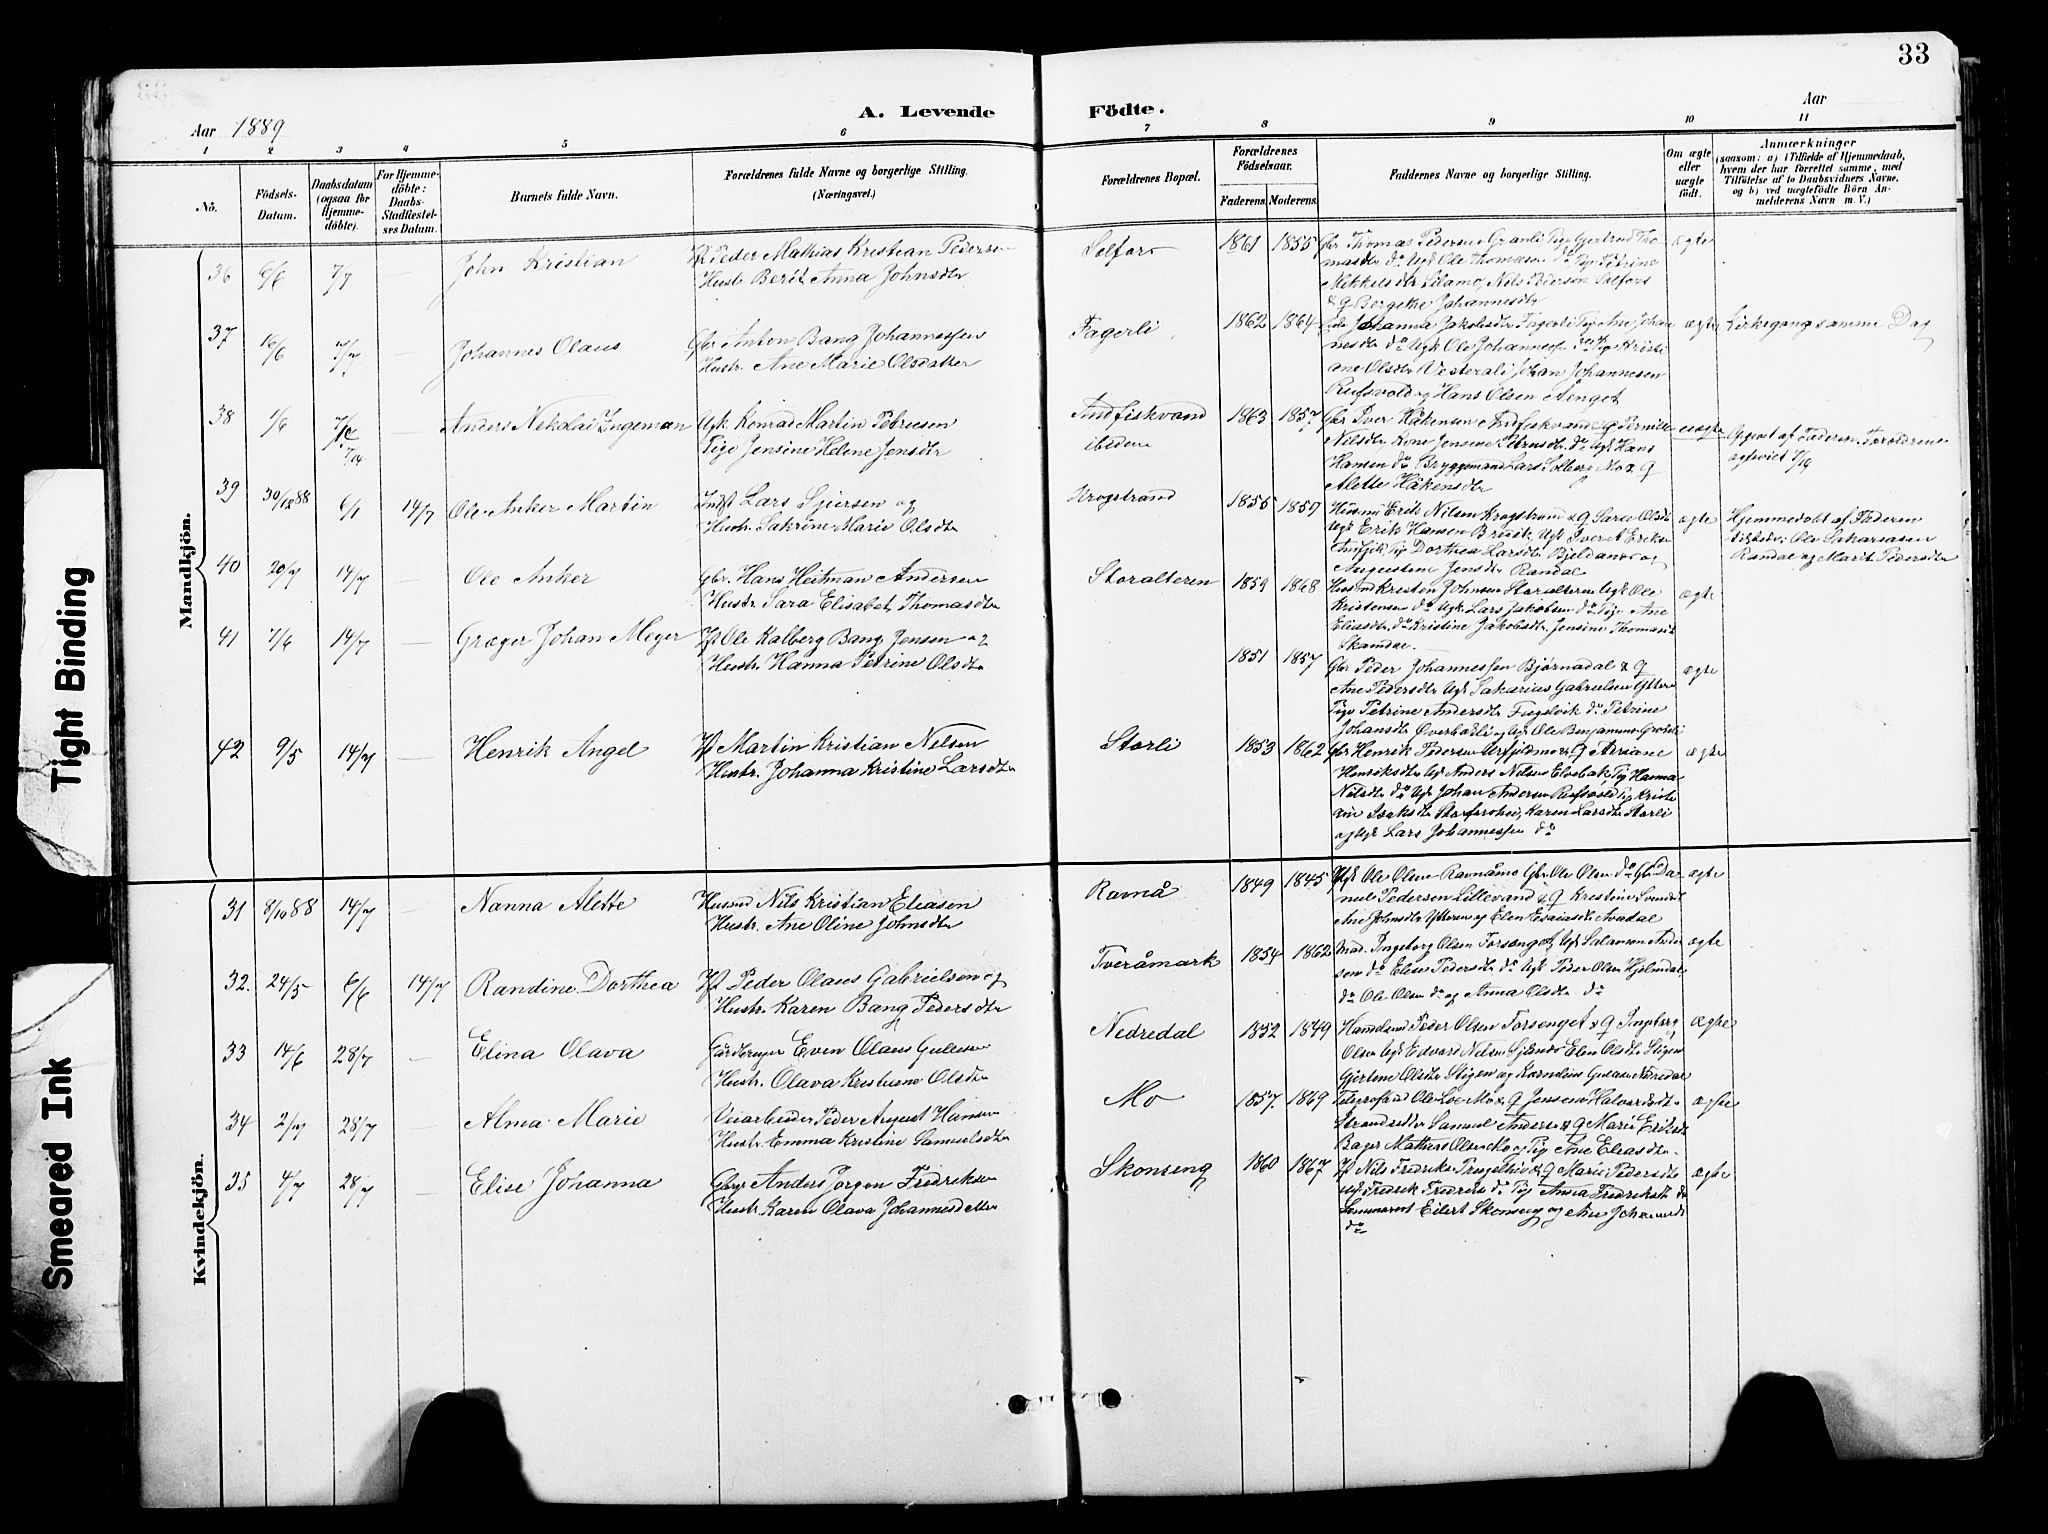 33
A. Levende Födte.
Aar 1889
Aar
1 2 3 4 5 6 7 8 9 10 11
No.
Födsels-
Datum.
Daabsdatum
(ogsaa for
Hjemme-
döbte).
For Hjemme-
döbte:
Daabs-
Stadfæstel-
ses Datum.
Barnets fulde Navn.
Forældrenes fulde Navne og borgerlige Stilling.
(Næringsvei.)
Forældrenes Bopæl.
Forældrenes
Födselsaar.
Faderens. Moderens.
Faddernes Navne og borgerlige Stilling.
Om ægte
eller
uægte
födt.
Anmærkninger
(saasom: a) i Tilfælde af Hjemmedaab,
hvem der har forrettet samme, med
Tilföielse af to Daabsvidners Navne,
og b) ved uegtefödte Börn An-
melderens Navn m. V.)
Mandkjön.
36 6/6 7/7 — John Kristian
Peder Mathias Kristian Pederse
Hustr Berit Anna Johnsdtr
Selfors 1861 1855
Thomas Pedersen Granli Pige Gjertrud Tho
masdtr do Ugk Ole Thomassen do Pige Petrine
Mikkelsdtr Lilamo, Nils Pedersen Selfors
& Q Bergithe Johannesdtr
ægte
37 16/6 7/7 — Johannes Olaus
Gbr Anton Bang Johannessen
Hustr. Ane Marie Olsdatter
Fagerli 1862 1864
Johanna Jakobsdtr Fagerli Pige Ane Johan
nesdtr do Ugk Ole Johannessen do Pige Kristi
ane Olsdtr Vesterali Johan Johannesen
Rufsvold og Hans Olsen Aenget
ægte Kirkegang samme Dag
38 1/6 7/7 Anders Nekolai Ingeman
Ugk. Konrad Martin Petersen
Pige Jensine Helene Jensdtr
Andfiskvand
ibidem
1863 1857
Gbr Iver Håkensen Andfiskvand & Q Pernille
Nilsdtr, Kone Jensine Petersdtr do Ugk Hans
Hansen do Bryggemand Lars Solberg Mo & Q
Alette Håkensdtr
uægte Opgivet af Faderen. Forældrene
39 30/12 88 6/1 14/7 Ole Anker Martin
Indst Lars Sjursen og
Hustr. Sakrine Marie Olsdtr
Krogstrand 1855 1859
Husmd Erik Nilsen Krogstrand & Q Sara Olsdtr
Ugk Erik Hansen Brævik Ugk Iver A Eriksen
Dorthea Larsdtr Bjeldånes og
Augustine Jensdtr Randal
ægte Hjemmedøbt af Faderen
Ole Sakariasen
Randal og Marit Pedersdtr
40 20/4 14/7 — Ole Anker
Gbr. Hans Heitman Andersen
Hustr. Sara Elisabet Thomasdtr
Storalteren 1859 1868
Husmd Kristen Johnsen Storalteren Ugk Ole
Kristensen do Ugk Lars Jakobsen do Pige Ane
Eliasdtr do Kristine Jakobsdtr Jensine Thomasdtr
Skamdal
ægte
41 7/6 14/7 — Græger Johan Meyer
Ole Kalberg Bang Jensen og
Hustr. Hanna Petrine Olsdtr
1851 1857
Gbr Peder Johannessen Bjørnådal & Q
Ane Pedersdtr Ugk Sakarias Gabrielsen Ytteren
Pige Petrine Andersdtr Fuglvik do Petrine
Johansdtr Overbælli og Ugk Ole Benjaminsen Grønli
ægte
42 9/5 14/7 — Henrik Angel
Martin Kristian Nilsen
Hustr. Johanna Kristine Larsdtr
Storli 1853 1862
Gbr Henrik Pedersen Urfjeldmo & Q Adriane
Henriksdtr Ugk Anders Nilsen Elvebak Pig Hanna
Nilsdtr do Ugk Johan Andersen Rufsvold Pig Kristi
ane Isaksdtr Storforshei, Karen Larsdtr Storli
og Ugk Lars Johannessen do
ægte
Kvindekjön.
31 8/10 88 14/7 — Nanna Alette
Husmd Nils Kristian Eliasen
Hustr. Ane Oline Johnsdtr
Ravnå 1849 1845
Ugk Ole Olsen Ravnåmo Gbr Ole Olsen do Gbr Da
niel Pedersen Lillevand & Q Kristine Svendsdtr
Ane Johnsdtr Ytteren og Elen Esaiasdtr Avadal
ægte
32. 24/5 6/6 14/7 Randine Dorthea
Peder Olaus Gabrielsen og
Hustr. Karen Bang Pedersdtr
Tveråmark 1854 1862
Mad. Ingeborg Olsen Forsenget Ugk Salamon Ander
sen do Elise Pedersdtr do Ugk Peder Olsen Hjelmdal
do Ole Olsen do og Anna Olsdtr do
ægte
33 14/6 28/7 — Elina Olava
Gårdbruger Even Olaus Gullesen
Hustr. Olava Kristiane Olsdtr
Nedredal 1852 1849
Handlsmd Peder Olsen Forsenget & Q Ingeborg
Olsen Ugk Edvard Nilsen Elen Olsdtr Stigen
Gjertine Olsdtr Stigen og Kornelius Gullesen Næredal
ægte
34 2/7 28/7 — Alma Marie
Veiarbeider Peder August Hansen
Hustr. Emma Kristine Samuelsdtr
Mo 1857. 1869
Ole Loe Mo & Q Jensine Halvorsdtr
Strandsidder Samuel Anders & Q Marie Eriksdtr
Bager Mathias Olsen Mo og Pig Ane Eliasdtr
ægte
35 4/7 28/7 — Elise Johanna
Gbr Anders Jørgen Fredriksen
Hustr. Karen Olava Johannesdatter
Skonseng 1860 1867
Nils Fredriks & Q Marie Pedersdtr
Ugk Fredrik Fredriks do Pig Anna Fredriksdtr do
Eilert Skonseng og Ane Johannesdtr
do
ægte
Tight Binding
Smeared Ink